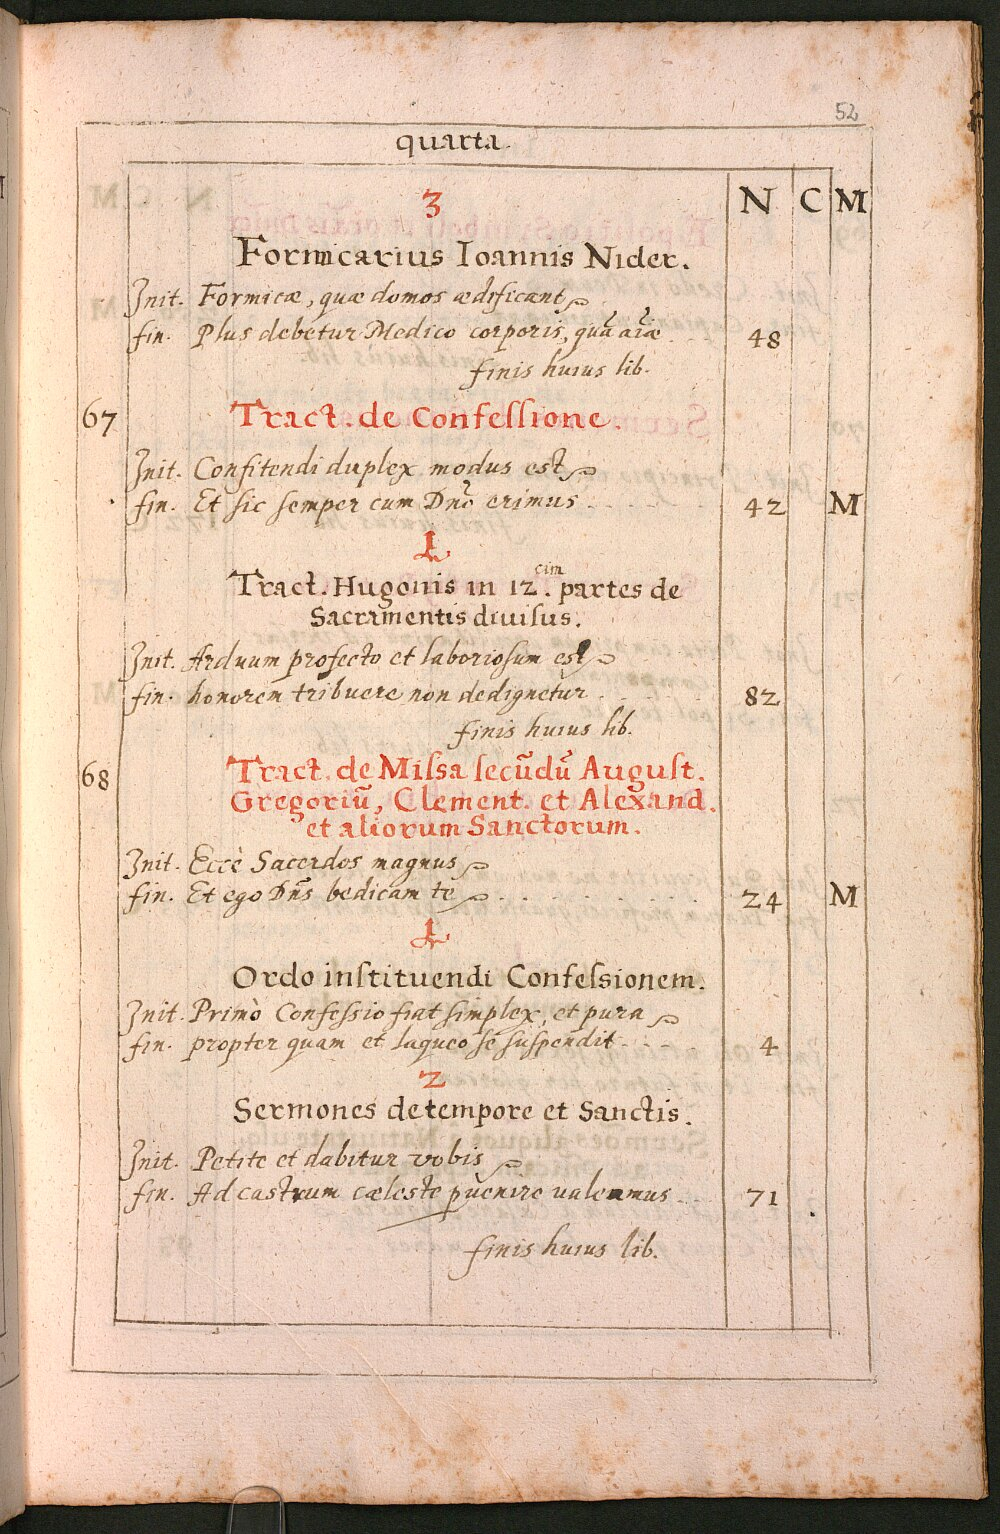 52
quarta.
N C M
3
Formicarius Ioannis Nider.
Init. Formicæ, quæ domos ædificant
fin. Plus debetur Medico corporis, quā aīæ 48
finis huius lib.
67 Tract. de Confeſſione.
Init. Confitendi duplex modus est
fin. Et ſic ſemper cum Dnō erimus 42 M
1
Tract. Hugonis in 12.cim partes de
Sacramentis diuiſus.
Init. Arduum profecto et laborioſum est
fin. honorem tribuere non dedignetur 82
finis huius lib.
68 Tract. de Miſsa ſecūdū Auguſt.
Gregoriū, Clement. et Alexand.
et aliorum Sanctorum.
Init. Eccè Sacerdos magnus
fin. Et ego Dn̄s bedicam te 24 M
1
Ordo inſtituendi Confeſsionem.
Init. Primò Confeſsio fiat ſimplex, et pura
fin. propter quam et laqueo ſe ſuſpendit 4
2
Sermones de tempore et Sanctis.
Init. Petite et dabitur vobis
fin. Ad castrum cæleste ꝑuenire ualeamus 71
finis huius lib.